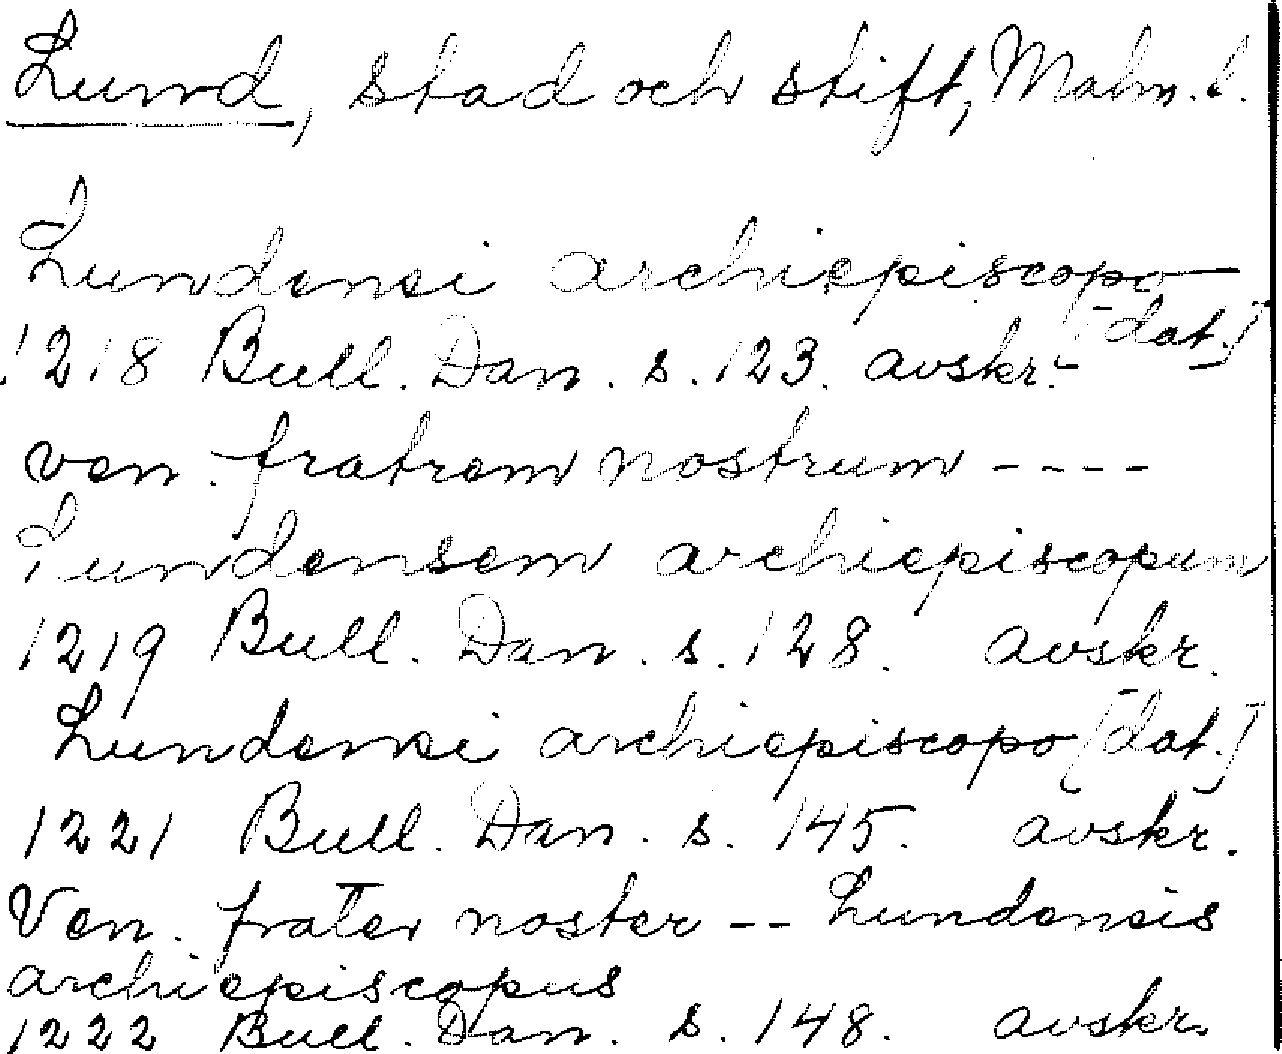 Lund, stad och stift, Malm. l.
Lundensi archiepiscopo
[dat.]
1218 Bull. Dan. s. 123. avskr.
ven. fratrem nostrum ----
Lundensem archiepiscopum
1219 Bull. Dan. s. 128. avskr.
Lundensi archiepiscopo [dat.]
1221 Bull. Dan. s. 145. avskr.
Ven. frater noster -- Lundensis
archiepiscopus
1222 Bull. Dan. s. 148. avskr.